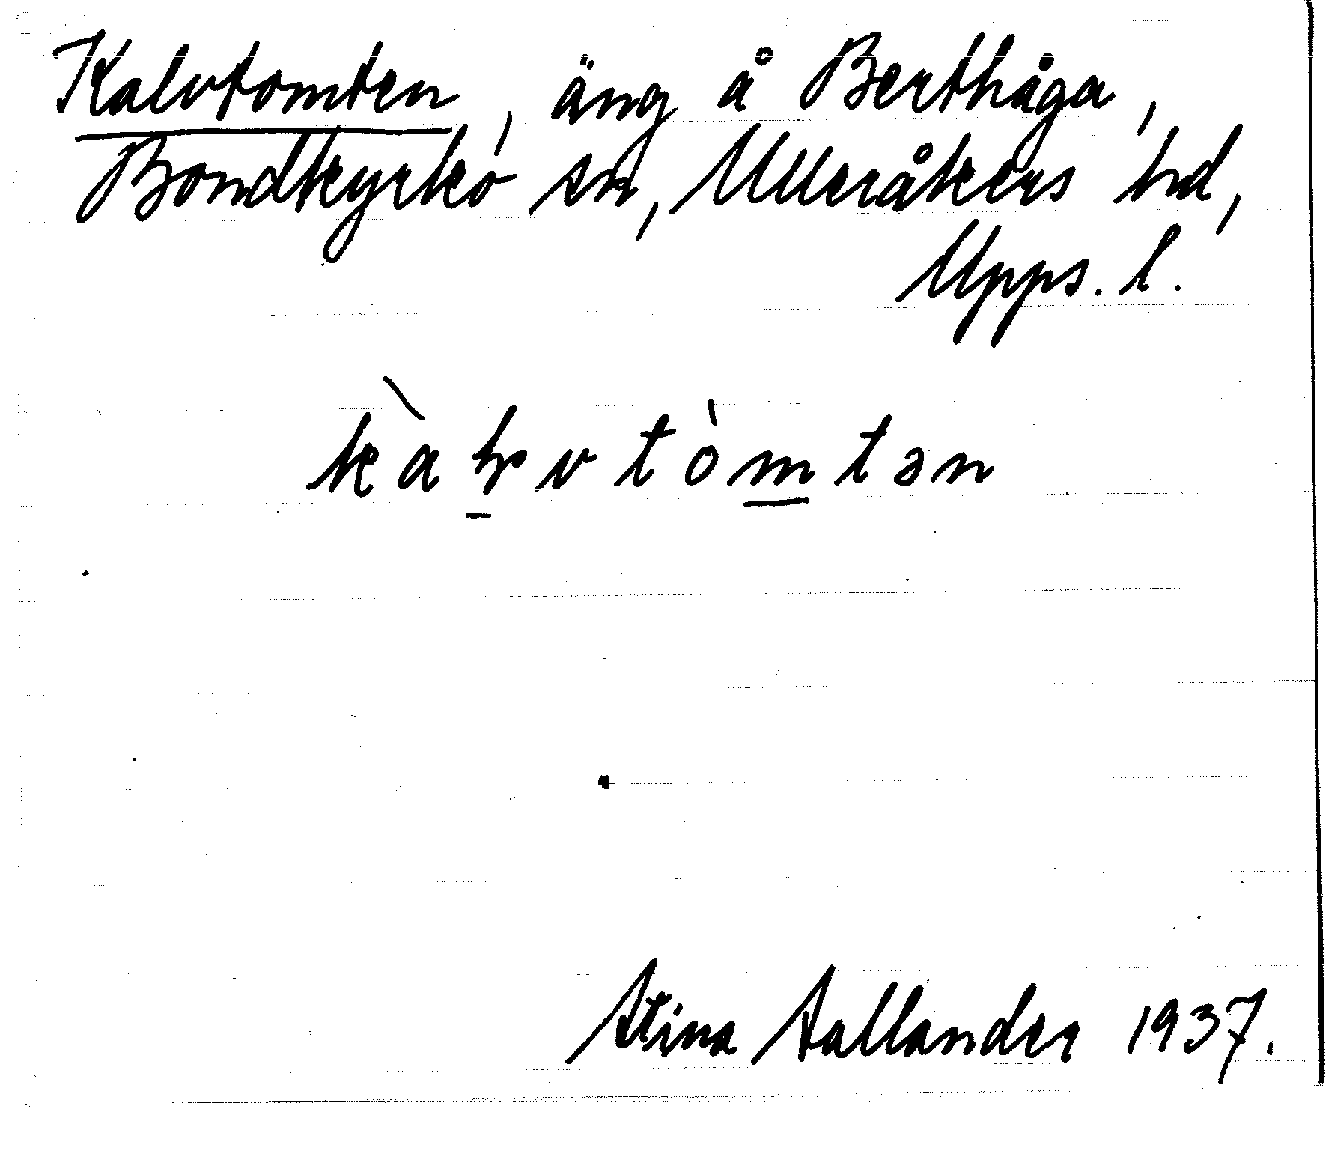 Kalvtomten, äng å Berthåga,
Bondkyrko sn, Ulleråkers hd,
Upps. l.
kàḷvtòm̲tən
Stina Sallander 1937.